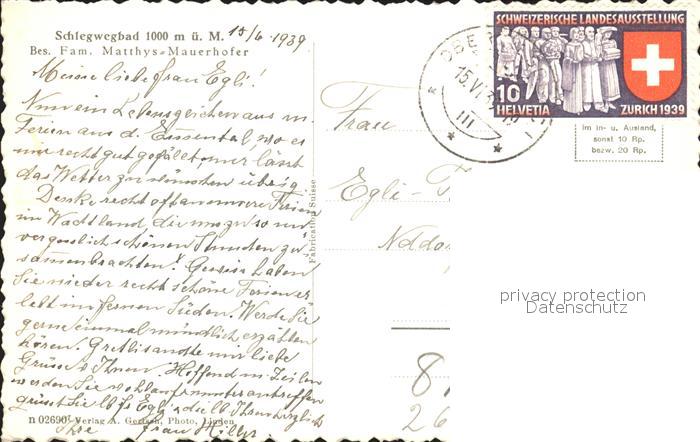 Schlegwegbad 1000 m ü. M. 15/6 1939
Bes. Fam. Matthys-Mauerhofer
Meine liebe Frau Egli!
Nun ein Lebenszeichen aus m.
Ferien aus d. Emmental, wo es
mir recht gut gefällt, nur lässt
das Wetter zu wünschen übrig.
Denke recht oft an unsere Ferien
im Wadtland, die wir zu so un-
vergesslich schönen Stunden zu-
sammenbrachten! Gewiss haben
Sie wieder recht schöne Ferien er-
lebt im fernen Süden. Werde Sie
gerne einmal mündlich erzählen
hören. Gretli sandte mir liebe
Grüsse v. Ihnen. Hoffend m. Zeilen
werden Sie wohlauf u. munter antreffen
grüsst Sie lb. Fr. Egli, die lb. Ihren herzlich
Ihre Frau
n 02690 Verlag A. Gertsch, Photo, Linden
Fabrication Suisse
SCHWEIZERISCHE LANDESAUSSTELLUNG
10
HELVETIA ZÜRICH 1939
OBE
15.VI.
III
Im In- u. Ausland,
sonst 10 Rp.
bezw. 20 Rp.
Frau
Egli-
Nddo
8
26
privacy protection
Datenschutz